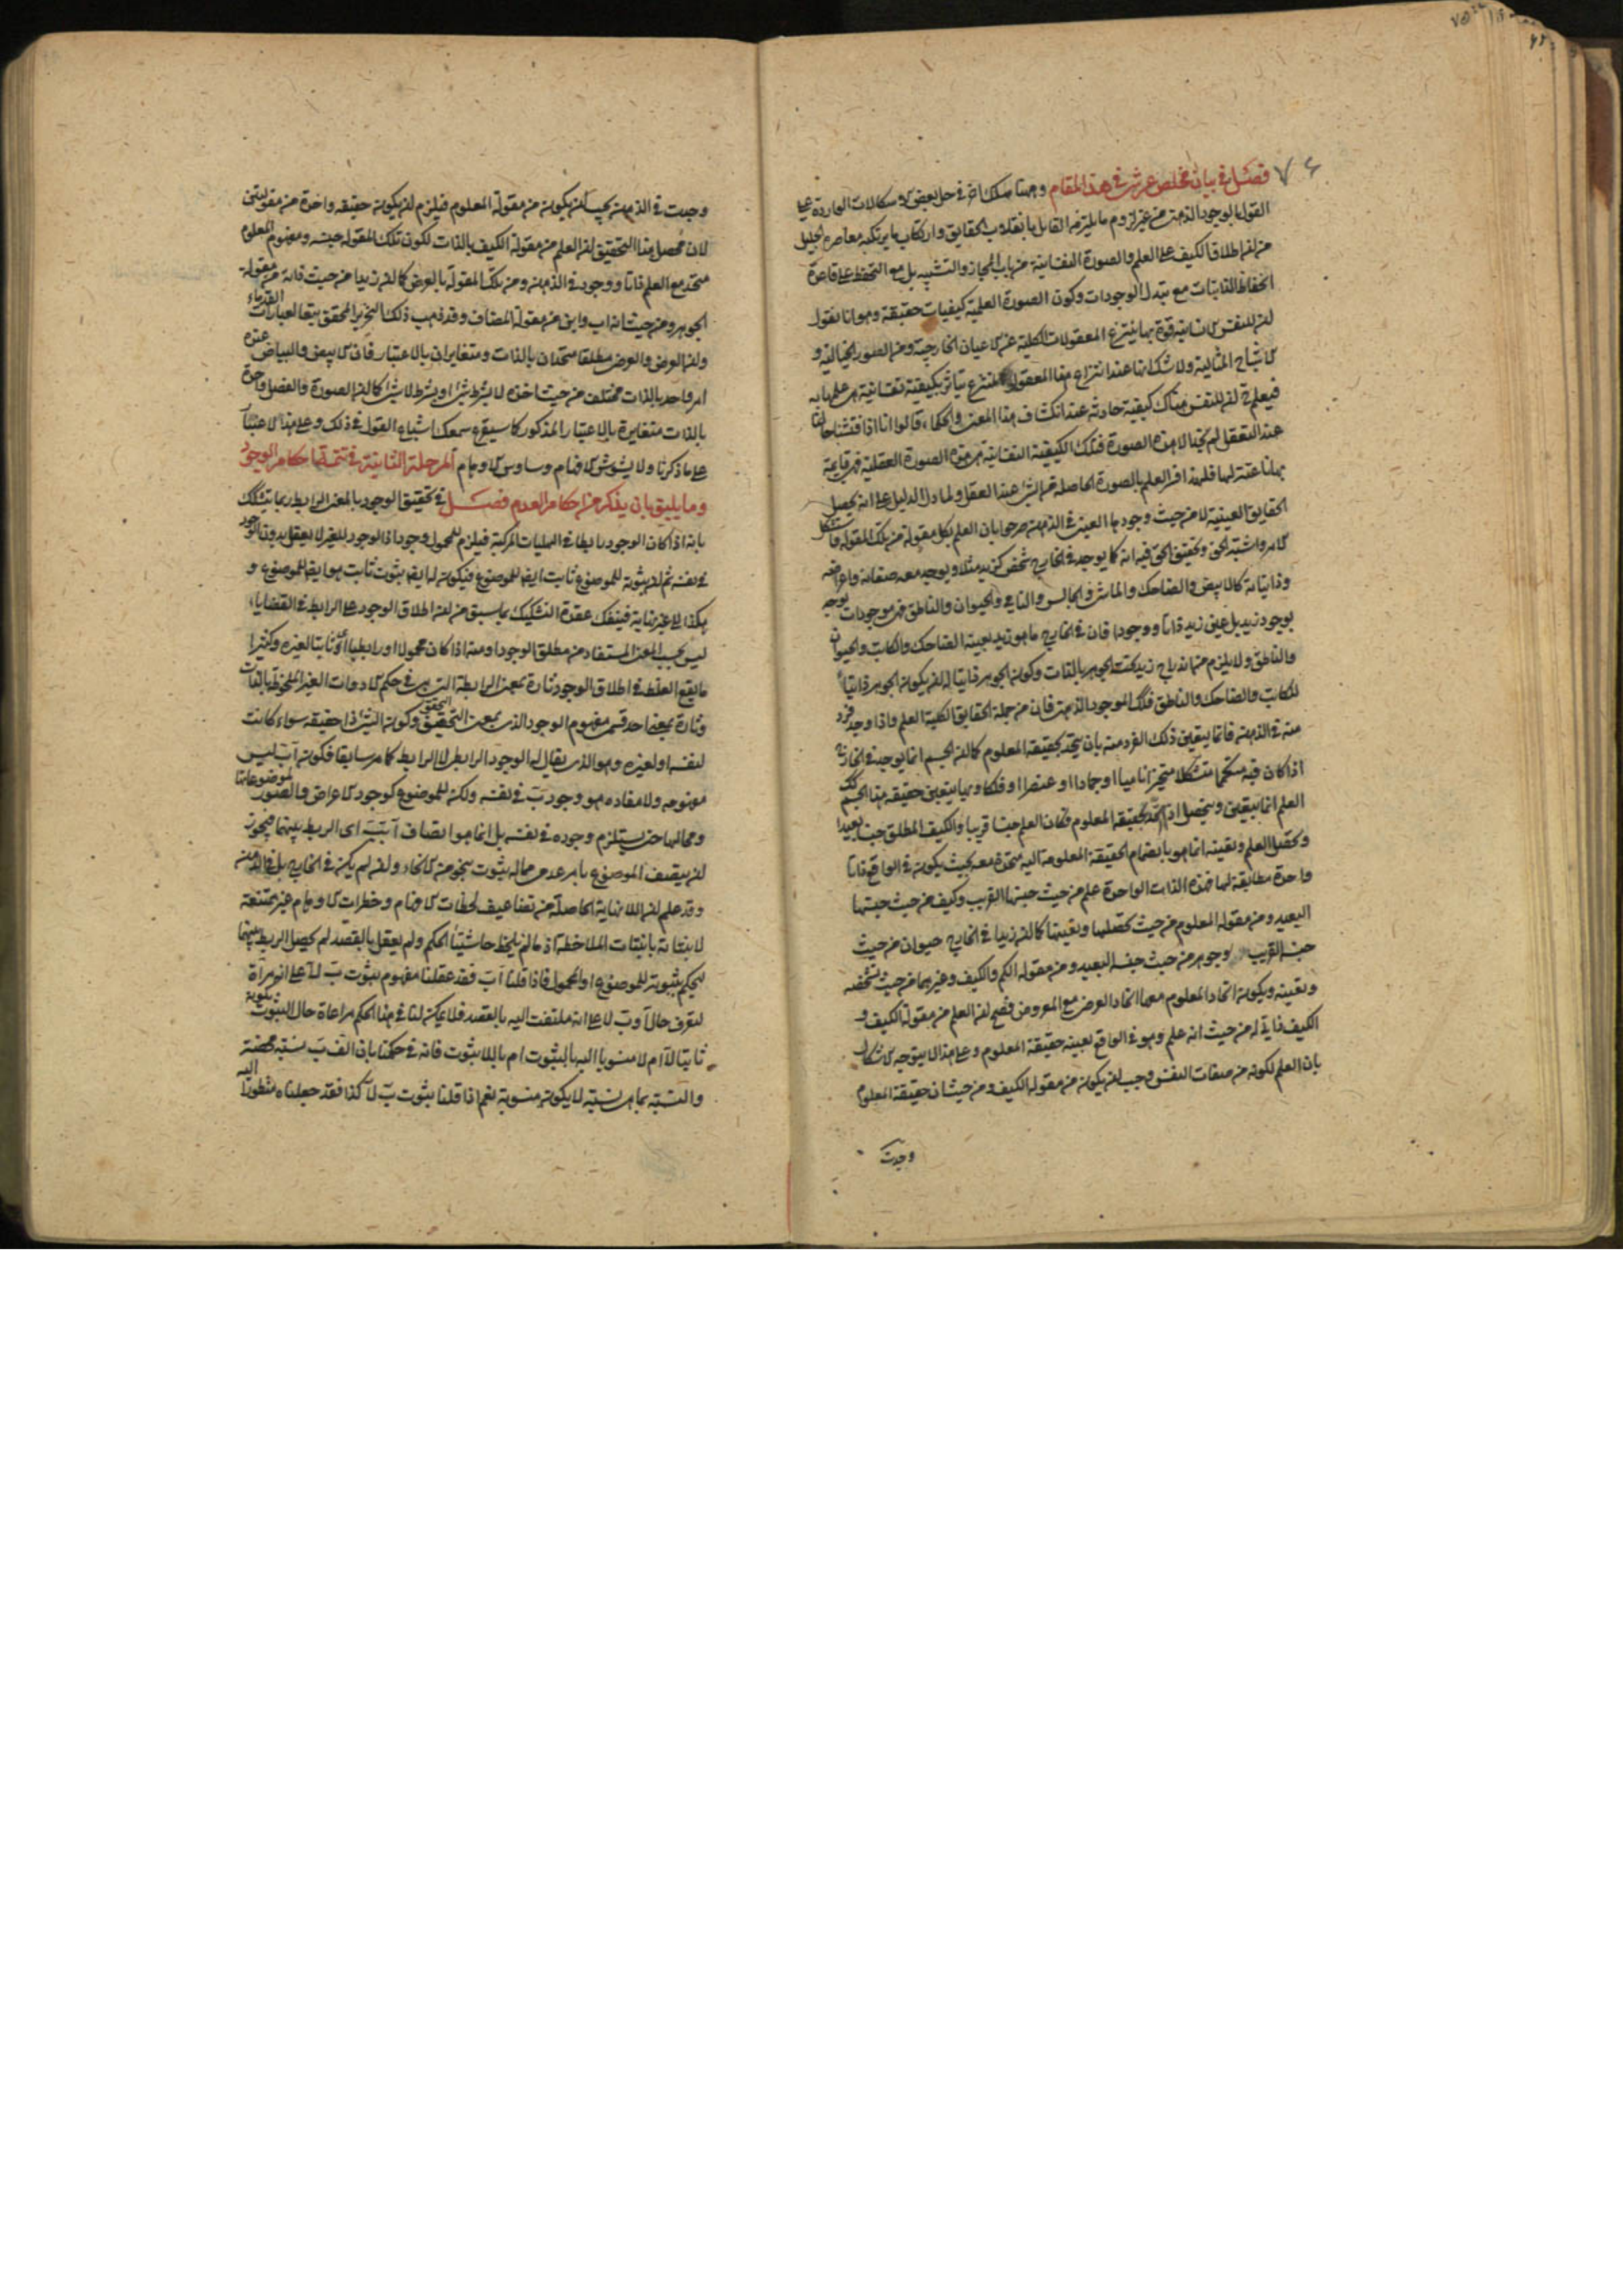 فصل في بيان مخلص عرشي في هذا المقام وههنا مسلك اخر في حل بعض الاشكالات الواردة على
القول بالوجود الذهني من غير لزوم ما يلتزمه القائل بانقلاب الحقايق وارتكاب ما يرتكبه معاصره الجليل
من ان اطلاق الكيف على العلم والصورة النفسانية من باب المجاز والتشبيه بل مع التحفظ على قاعدة
انحفاظ الذاتيات مع تبدل الوجودات وكون الصورة العلمية كيفيات حقيقة وهو انا نقول
ان للنفس الانسانية قوة بها ينتزع المعقولات الكلية عن الاعيان الخارجية ومن الصور الخيالية و
الاشباح المثالية ولا شك انها عند انتزاع هذا المعقول المنتزع يتاثر بكيفية نفسانية هي علمها به
فيعلم ان للنفس هناك كيفية حادثة عند انكشاف هذا المعنى والحكماء قالوا انا اذا فتشنا حالنا
عند التعقل لم نجد الا هذه الصورة فتلك الكيفية النفسانية هي هذه الصورة العقلية فهي قايمة
بها ناعتة لها فلهذا فسر العلم بالصورة الحاصلة من الشئ عند العقل ولما دل الدليل على انه يحصل
الحقايق العينية لا من حيث وجودها العيني في الذهن صرحوا بان العلم بكل مقولة من تلك المقولة فاستشكل
الامر واشتبه الحق وتحقيق الحق فيه انه كما يوجد في الخارج شخص كزيد مثلا ويوجد معه صفاته واعراضه
وذاتياته كالابيض والضاحك والماشي والجالس والنامي والحيوان والناطق فهي موجودات توجد
بوجود زيد بل عين زيد ذاتا ووجودا فان في الخارج ما هو زيد بعينه الضاحك والكاتب والحيوان
والناطق ولا يلزم من اندراج زيد تحت الجوهر بالذات وكون الجوهر ذاتيا له ان يكون الجوهر ذاتيا
للكاتب والضاحك والناطق فكذلك الموجود الذهني فان من جملة الحقايق الكلية العلم واذا وجد فرد
منه في الذهن فانما يتعين ذلك الفرد منه بان يتحد بحقيقة المعلوم كما ان الجسم انما يوجد في الخارج
اذا كان فيه متكمما متشكلا متحيزا ناميا او جمادا او عنصرا او فلكا وبها يتعين حقيقة هذا الجسم كذلك
العلم انما يتعين ويتحصل اذا اتحد بحقيقة المعلوم فكان العلم جنسا قريبا والكيف المطلق جنسا بعيدا
وتحصل العلم وتعينه انما هو بانضمام الحقيقة المعلومة اليه متحدة معه بحيث يكون في الواقع ذاتا
واحدة مطابقة لها فهذه الذات الواحدة علم من حيث جنسها القريب وكيف من حيث جنسها
البعيد ومن مقولة المعلوم من حيث تحصلها وتعينها كما ان زيدا في الخارج حيوان من حيث
جنسه القريب وجوهر من حيث جنسه البعيد ومن مقولة الكم والكيف وغيرهما من حيث تشخصه
وتعينه ويكون اتحاد المعلوم معها اتحاد العرض مع المعروض فصح ان العلم من مقولة الكيف و
الكيف ذاتي له من حيث انه علم وهو في الواقع بعينه حقيقة المعلوم وعلى هذا لا يتوجه الاشكال
بان العلم لكونه من صفات النفس وجب ان يكون من مقولة الكيف ومن حيث ان حقيقة المعلوم
وجدت
وجدت في الذهن يجب ان يكون من مقولة المعلوم فيلزم ان يكون حقيقة واحدة من مقولتين
لان محصل هذا التحقيق ان العلم من مقولة الكيف بالذات لكون تلك المقولة جنسه ومفهوم المعلوم
متحد مع العلم ذاتا ووجودا في الذهن ومن تلك المقولة بالعرض كما ان زيدا من حيث ذاته من مقولة
الجوهر ومن حيث انه اب وابن من مقولة المضاف وقد ذهب ذلك النحرير المحقق تبعا لعبارات القدماء
وان العرض والعرضي مطلقا متحدان بالذات ومتغايران بالاعتبار فان الابيض والبياض عنده
امر واحد بالذات مختلف من حيث اخذه لا بشرط شئ او بشرط لا شئ كما ان الصورة والفصل واحدة
بالذات متغايرة بالاعتبار المذكور كما سيقرع سمعك اشباع القول في ذلك وعلى هذا لا غبار
على ما ذكرنا ولا يشوش الافهام وساوس الاوهام المرحلة الثانية في تتمة احكام الوجود
وما يليق بان يذكر من احكام العدم فصل في تحقيق الوجود بالمعنى الرابط ربما يتشكك
بانه اذا كان الوجود رابطا في الهليات المركبة فيلزم للمحمول وجود اذ الوجود للغير لا يعقل بدون الوجود
في نفسه ثم ان ثبوته للموضوع ثابت ايضا للموضوع فيكون له ايضا ثبوت ثابت هو ايضا للموضوع و
هكذا الى غير نهاية فيفك عقدة التشكيك بما سبق من ان اطلاق الوجود على الرابط في القضايا
ليس بحسب المعنى المستفاد من مطلق الوجود او منه اذا كان محمولا او رابطيا اي ثابتا لغيره وكثيرا
ما يقع الغلط في اطلاق الوجود تارة بمعنى الرابطة التي هي في حكم الادوات الغير الملحوظة بالذات
وتارة بمعنى احد قسمي مفهوم الوجود الذي بمعنى التحقق وكون الشئ ذا حقيقة سواء كانت
لنفسه او لغيره وهو الذي يقال له الوجود الرابطي لا الرابط كما مر سابقا فكون آ ب ليس
مفهومه ولا مفاده هو وجود ب في نفسه ولكن للموضوع كوجود الاعراض والصور لموضوعاتها
ومحالها حتى يستلزم وجوده في نفسه بل انما هو اتصاف آ ب ب اي الربط بينهما فيجوز
ان يتصف الموضوع بامر عدمي مما له ثبوت بنحو من الانحاء وان لم يكن في الخارج بل في الذهن
وقد علم ان اللانهاية الحاصلة من تضاعيف لحظات الافهام وخطرات الاوهام غير ممتنعة
لانبتاته بانبتات الملاحظة اذ ما لم يلحظ حاشيتا الحكم ولم يعقل بالقصد لم يحصل الربط بينهما
ليحكم بثبوته للموضوع او المحمول فاذا قلنا آ ب فقد عقلنا مفهوم ثبوت ب لآ على انه مرآة
لتعرف حال آ وب لا على انه ملتفت اليه بالقصد فلا يمكن لنا في هذا الحكم مراعاة حال الثبوت بكونه
ثابتا لآ ام لا منسوبا اليه بالثبوت ام باللاثبوت فانه في حكمنا بان الف ب نسبة محضة
والنسبة بما هي نسبة لا يكون منسوبة نعم اذا قلنا ثبوت ب لآ كذا فقد جعلناه منظورا اليه